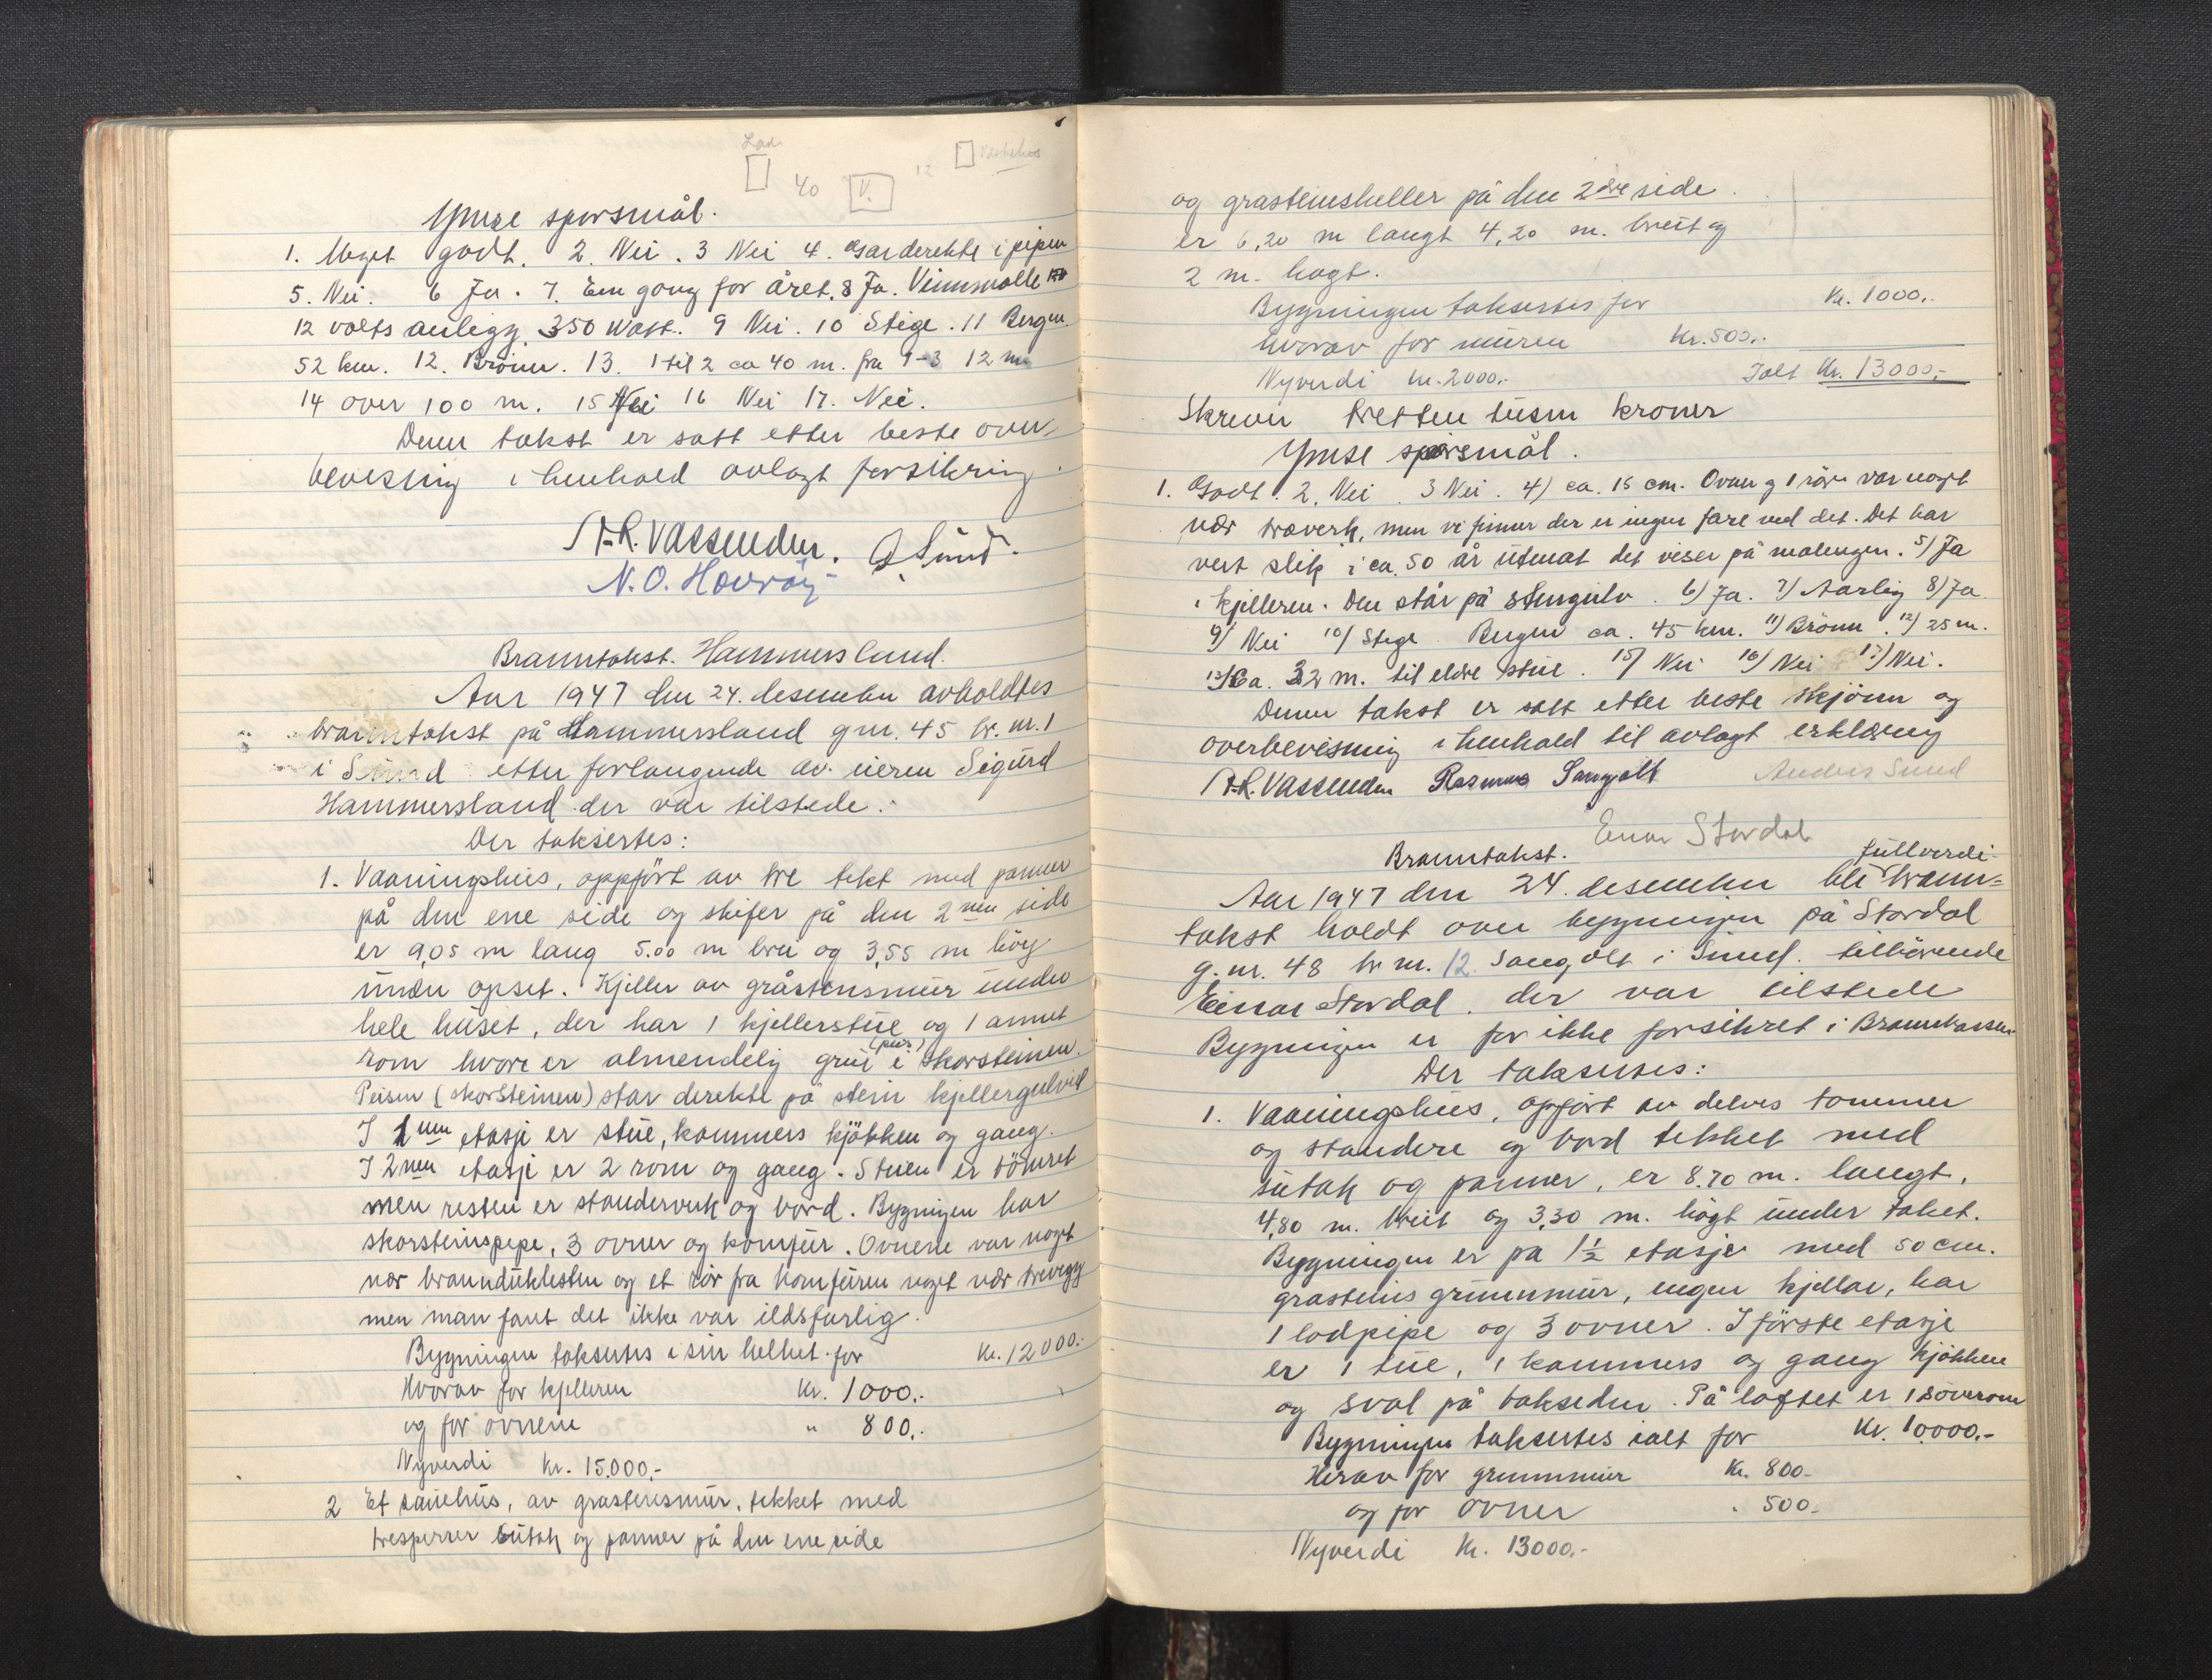 Lad
40
V.
12
Vaskehus
Ymse spørsmål.
1. Meget godt. 2. Nei. 3 Nei 4. Gar derekte i pipen
5. Nei. 6 Ja. 7. Em gong for året. 8 Ja. Vinnmølle
12 volts anlegg. 350 Watt. 9 Nei. 10 Stige. 11 Bergen.
52 km. 12. Brönn. 13. 1 til 2 ca 40 m. fra 1-3 12 m
14 over 100 m. 15 Nei 16 Nei 17. Nei.
Denne takst er satt etter beste over-
bevisning i henhold avlagt forsikring.
A.R. Vassenden. A Sund.
N.O. Havröy
Branntakst. Hammersland.
Aar 1947 den 24. desember avholdtes
branntakst på Hammersland gnr. 45 br. nr. 1
i Sund etter forlangende av eieren Sigurd
Hammersland der var tilstede.
Der taksertes:
1. Vaaningshus, oppfört av tre tekt med panner
på den ene side og skifer på den 2nen side
er 9,05 m lang 5.00 m brei og 3,55 m höy
under opset. Kjeller av gråstensmur under
hele huset, der har 1 kjellerstue og 1 annet
rom hvor er almendelig grue (peis) i skorsteinen.
Peisen (skorsteinen) star direkte på stein kjellergulvet
I 1nn etasje er stue, kammers kjökken og gang.
I 2nen etasje er 2 rom og gang. Stuen er tömret
men resten er standerverk og bord. Bygningen har
skorsteinspipe, 3 ovner og komfur. Ovnene var noget
nær brannduklisten og et rör fra komfuren noget nær trevegg
men man fant det ikke var ildsfarlig.
Bygningen taksertes i sin helhet for Kr. 12000.-
Hvorav for kjelleren Kr. 1000.-
og for ovnene " 800.-
Nyverdi Kr. 15.000.-
2 Et sauehus, av grasteinsmur, tekket med
tresperrer sutak og panner på den ene side
og grasteinsheller på den 2dre side.
er 6,20 m langt 4,20 m. breit og
2 m. hogt.
Bygningen taksertes for Kr. 1000.-
hvorav for muren Kr. 500.-
Nyverdi kr. 2000.- Ialt Kr. 13000.-
Skrever tretten tusen kroner
Ymse spörsmål.
1. Godt. 2. Nei. 3 Nei. 4) ca. 15 cm. Ovan og 1 rör var noget
nær treverk, men vi finner der er ingen fare ved det. Det har
vert slik i ca. 50 år utenat det viser på malingen. 5) Ja
i kjelleren. Den står på stengulv. 6) Ja. 7) Aarlig 8) Ja
9) Nei 10) Stege Bergen ca. 45 km. 11) Brönn. 12) 25 m.
13) Ca. 32 m. til eldre stue. 15) Nei 16) Nei 17) Nei.
Denne takst er satt etter beste skjönn og
overbevisning i henhold til avlagt erklæring
A.R. Vassenden Rasmus Sangolt Anders Sund
Einar Stordal
Branntakst. fullverdi
Aar 1947 den 24. desember ble brann=
takst holdt over bygningen på Stordal
g.nr. 48 br nr. 12 Sangolt i Sund. tilhörende
Einar Stordal. der var tilstede
Bygningen er för ikke forsikret i Brannkassen
Der taksertes:
1. Vaaningshus, opfört av delves tommer
og standere og bord tekket med
sutak og panner, er 8.70 m. langt,
4,80 m. breit og 3,30 m. högt under taket.
Bygningen er på 1½ etasje med 50 cm.
grasteins grunnmur, ingen kjellar, har
1 lodpipe og 3 ovner. I förste etasje
er 1 stue, 1 kammers og gang kjökken
og sval på baksiden. På loftet er 1 soverom
Bygningen taksertes ialt for Kr. 10.000.-
Herav for grunnmur Kr. 800-
og for ovner " 500-
Nyverdi Kr. 13000.-